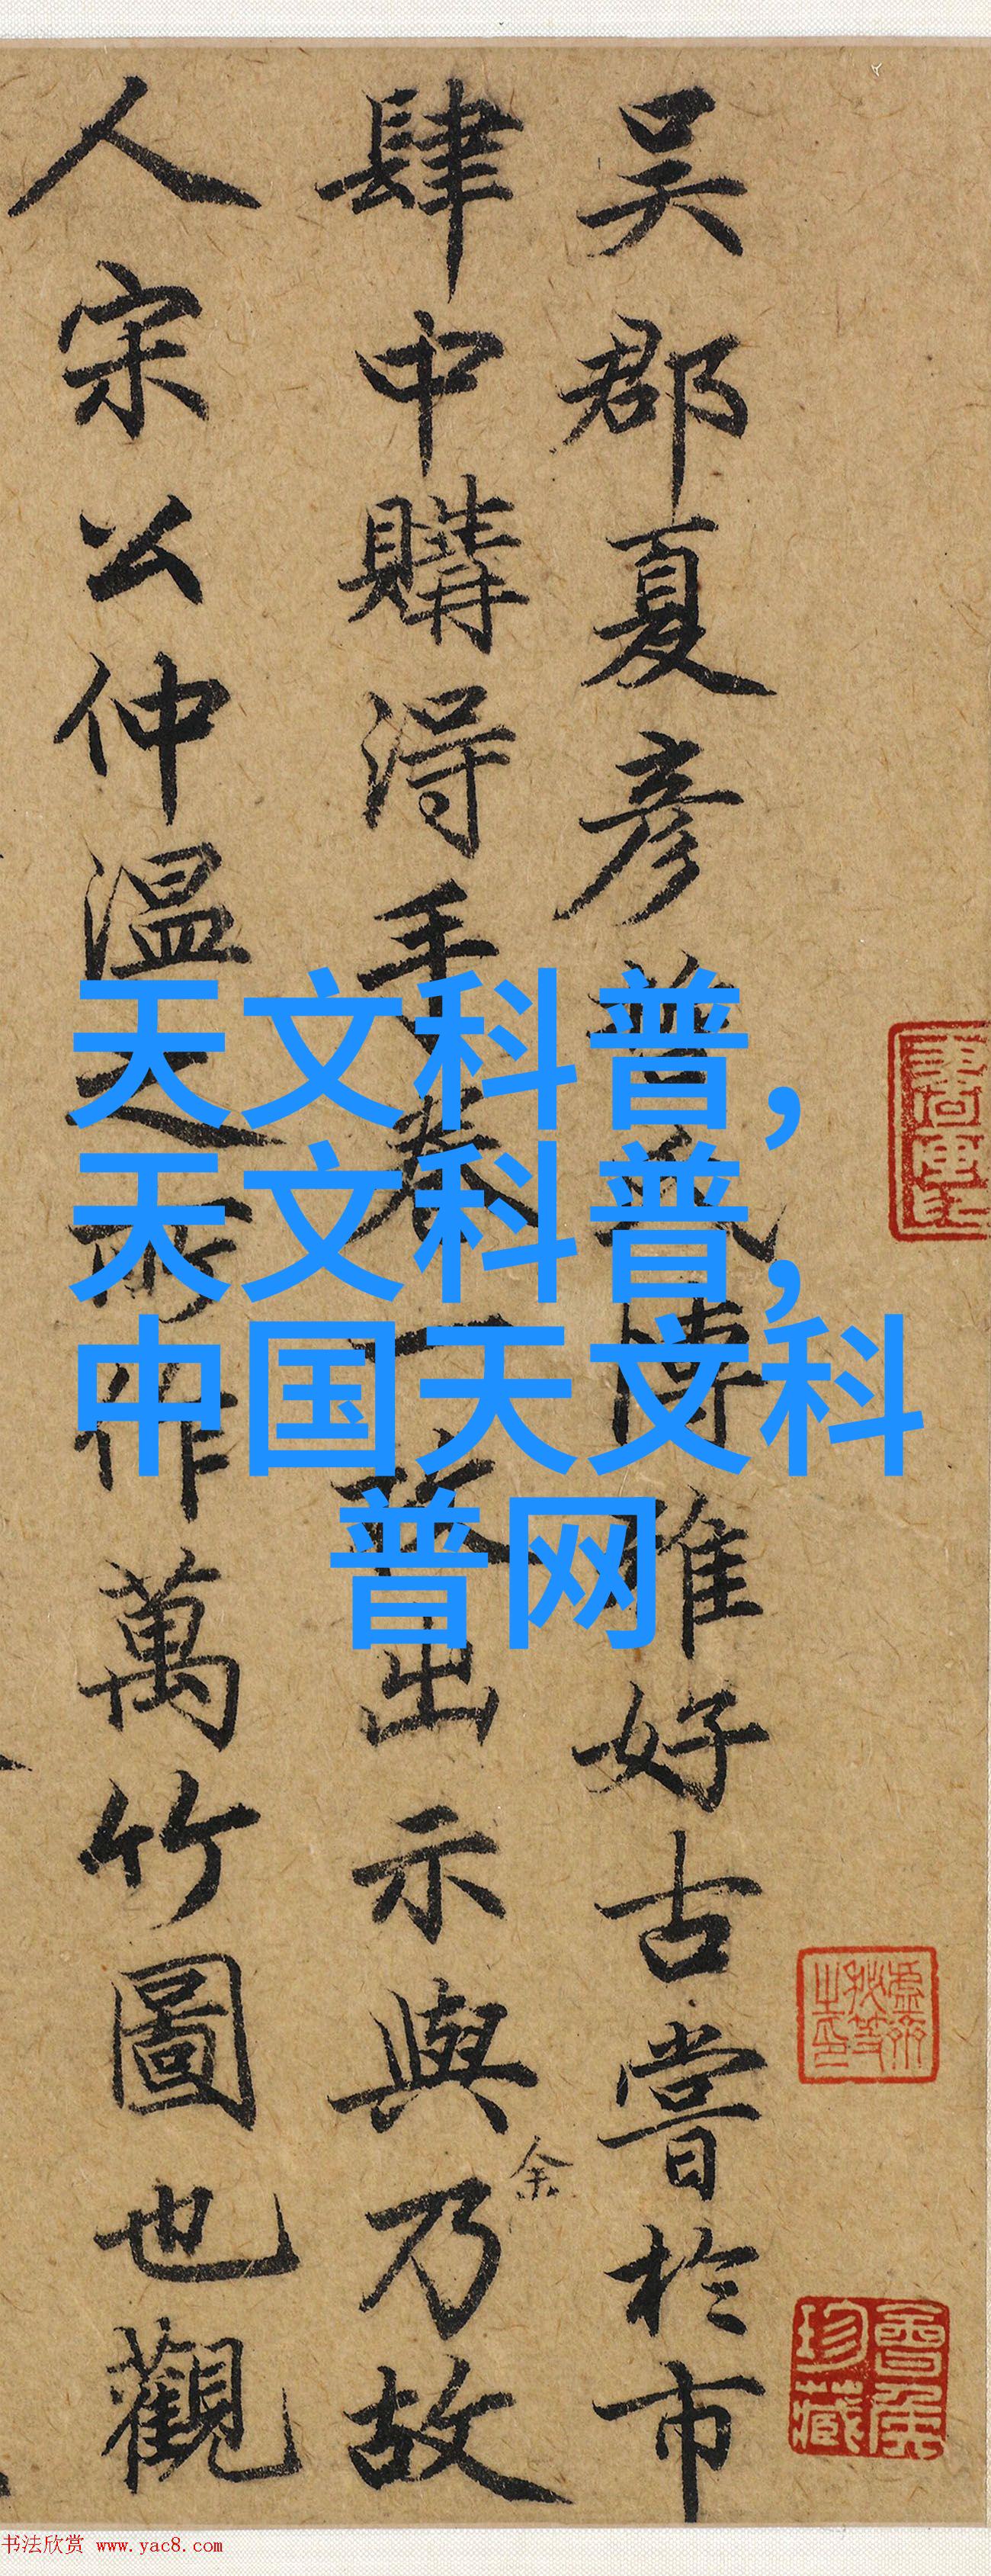 吴郡夏彦博雅好古嘗於市
肆中購得手卷一出示與乃故
余
人宋公仲温之所作萬竹圖也觀
天文科普，
天文科普，
中国天文科
普网
书法欣赏 www.yac8.com